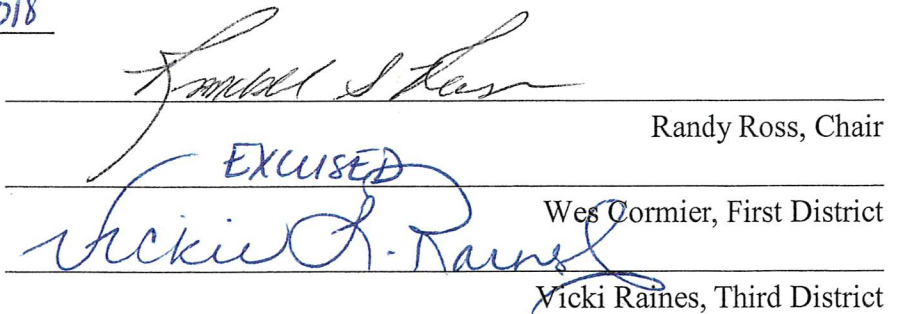 018
Randall S Ross
Randy Ross, Chair
EXCUSED
Wes Cormier, First District
Vickie L. Raines
Vicki Raines, Third District